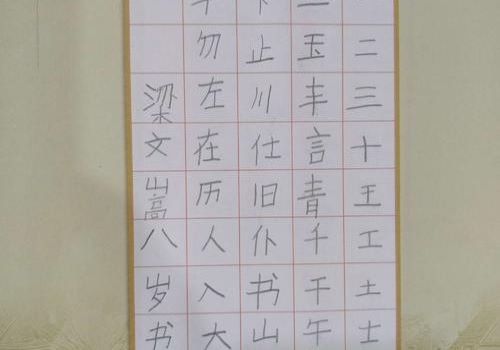 二三十王工土士
玉丰言青千干午
止川仕旧仆书山
勿左在历人入大
梁文嵩八岁书